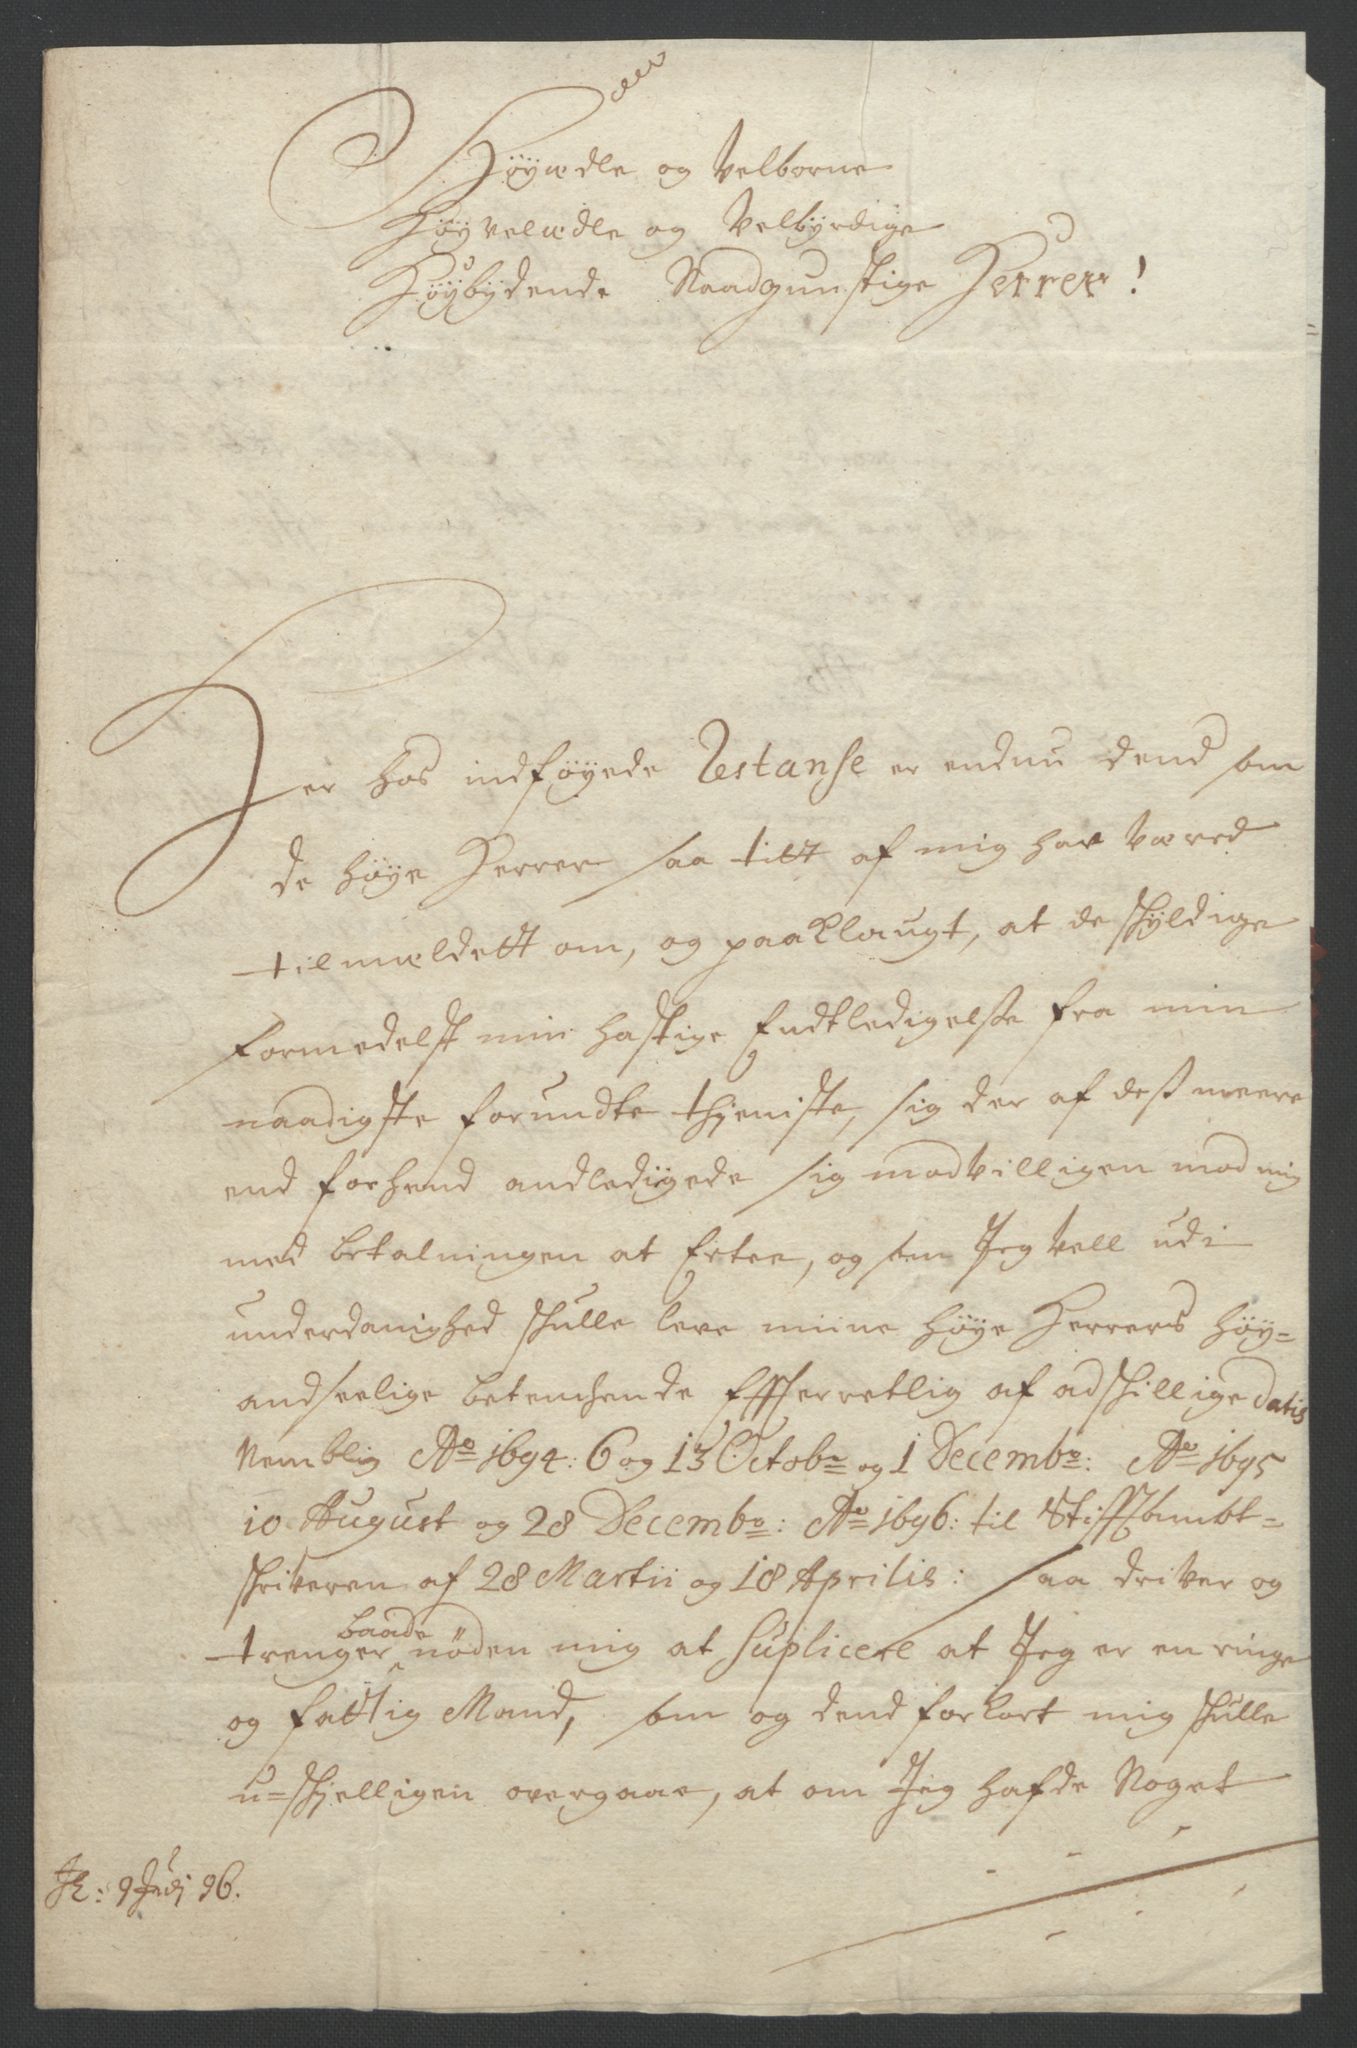 Høyædle og Velborne
Høyvelædle og Velbyrdige
Høybydende Naadgunstige Herrer!
Her hos indføyede Restanse er endnu dend som
de høye Herrer saa titt af mig har væred
tilmældett om, og paaklaugt, at de schyldige
formedelst min hastige Endtledigelse fra min
naadigste forundte thjeniste, sig der af dess meere
end forhend andledigede sig modvilligen mod mig
med betalningen at Ertee, og som Jeg vell udi
underdanighed schulle leve miine høye Herrers høy-
andseelige betenchende Effterretlig af adschillige datis
Nemblig Ao 1694: 6 og 13 Octobr og 1 Decembr: Ao 1695
10 August og 28 Decembr: Ao 1696: til Stifftambt-
schriveren af 28 Martii og 18 Aprilis: saa driver og
trenger baade nöden mig at Suplicere at Jeg er en ringe
og fattig Mand, som og dend forkort mig schulle
u-schjelligen overgaae, at om Jeg hafde Noget
9 96.